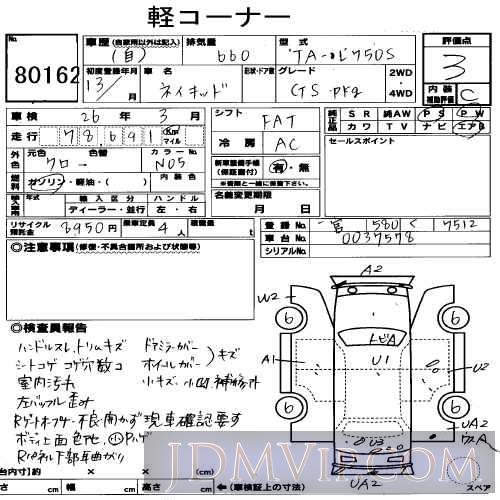 軽コーナー
No. 80162
車歴 (自家用以外は記入) (自)
排気量 660
型式 TA-L750S
評価点 3
初度登録年月 13/
車名 ネイキッド
形状・ドア数
グレード G S・pkg
2WD
4WD
内装補助評価 C
車検 26年 3月
シフト FAT
純正品 SR 純AW PS PW
カワ TV ナビ エアB
走行 78,691 Km マイル
冷房 AC
セールスポイント
外色 元色 クロー 色替 カラーNo. N05
新車整備手帳(保証書付) 有・無
※書類と一緒に保管下さい。
燃料 ガソリン・軽油・( )
名義変更期限 月 日
輸入車 年式 輸入区分 ハンドル
ディーラー・並行 左・右
リサイクル預託金 8950円
乗車定員 4人
積載量 t
登録No. 580 く 7512
車台No. 0037578
シリアルNo.
◎注意事項 (修復・不具合箇所および状態等)
◎検査員報告
ハンドルスレ、トリムキズ ドアミラーカバー
シートコゲ コゲ穴数コ ホイルカバー )キズ
室内汚れ 小キズ、小凹 補修跡
左バッフル歪み
Rゲートオープナー不良・開かず 現車確認要す
ボディ上面色地
Rパネル下部早曲がり
A2
U2
6
6
トビA
A1
U1
U2
6
6
UA2
U3
UA2
スペア
台内寸] 約 × × (cm)
長さ cm 幅 cm 高さ cm ←(車検証上の寸法)
JDMVIP.com